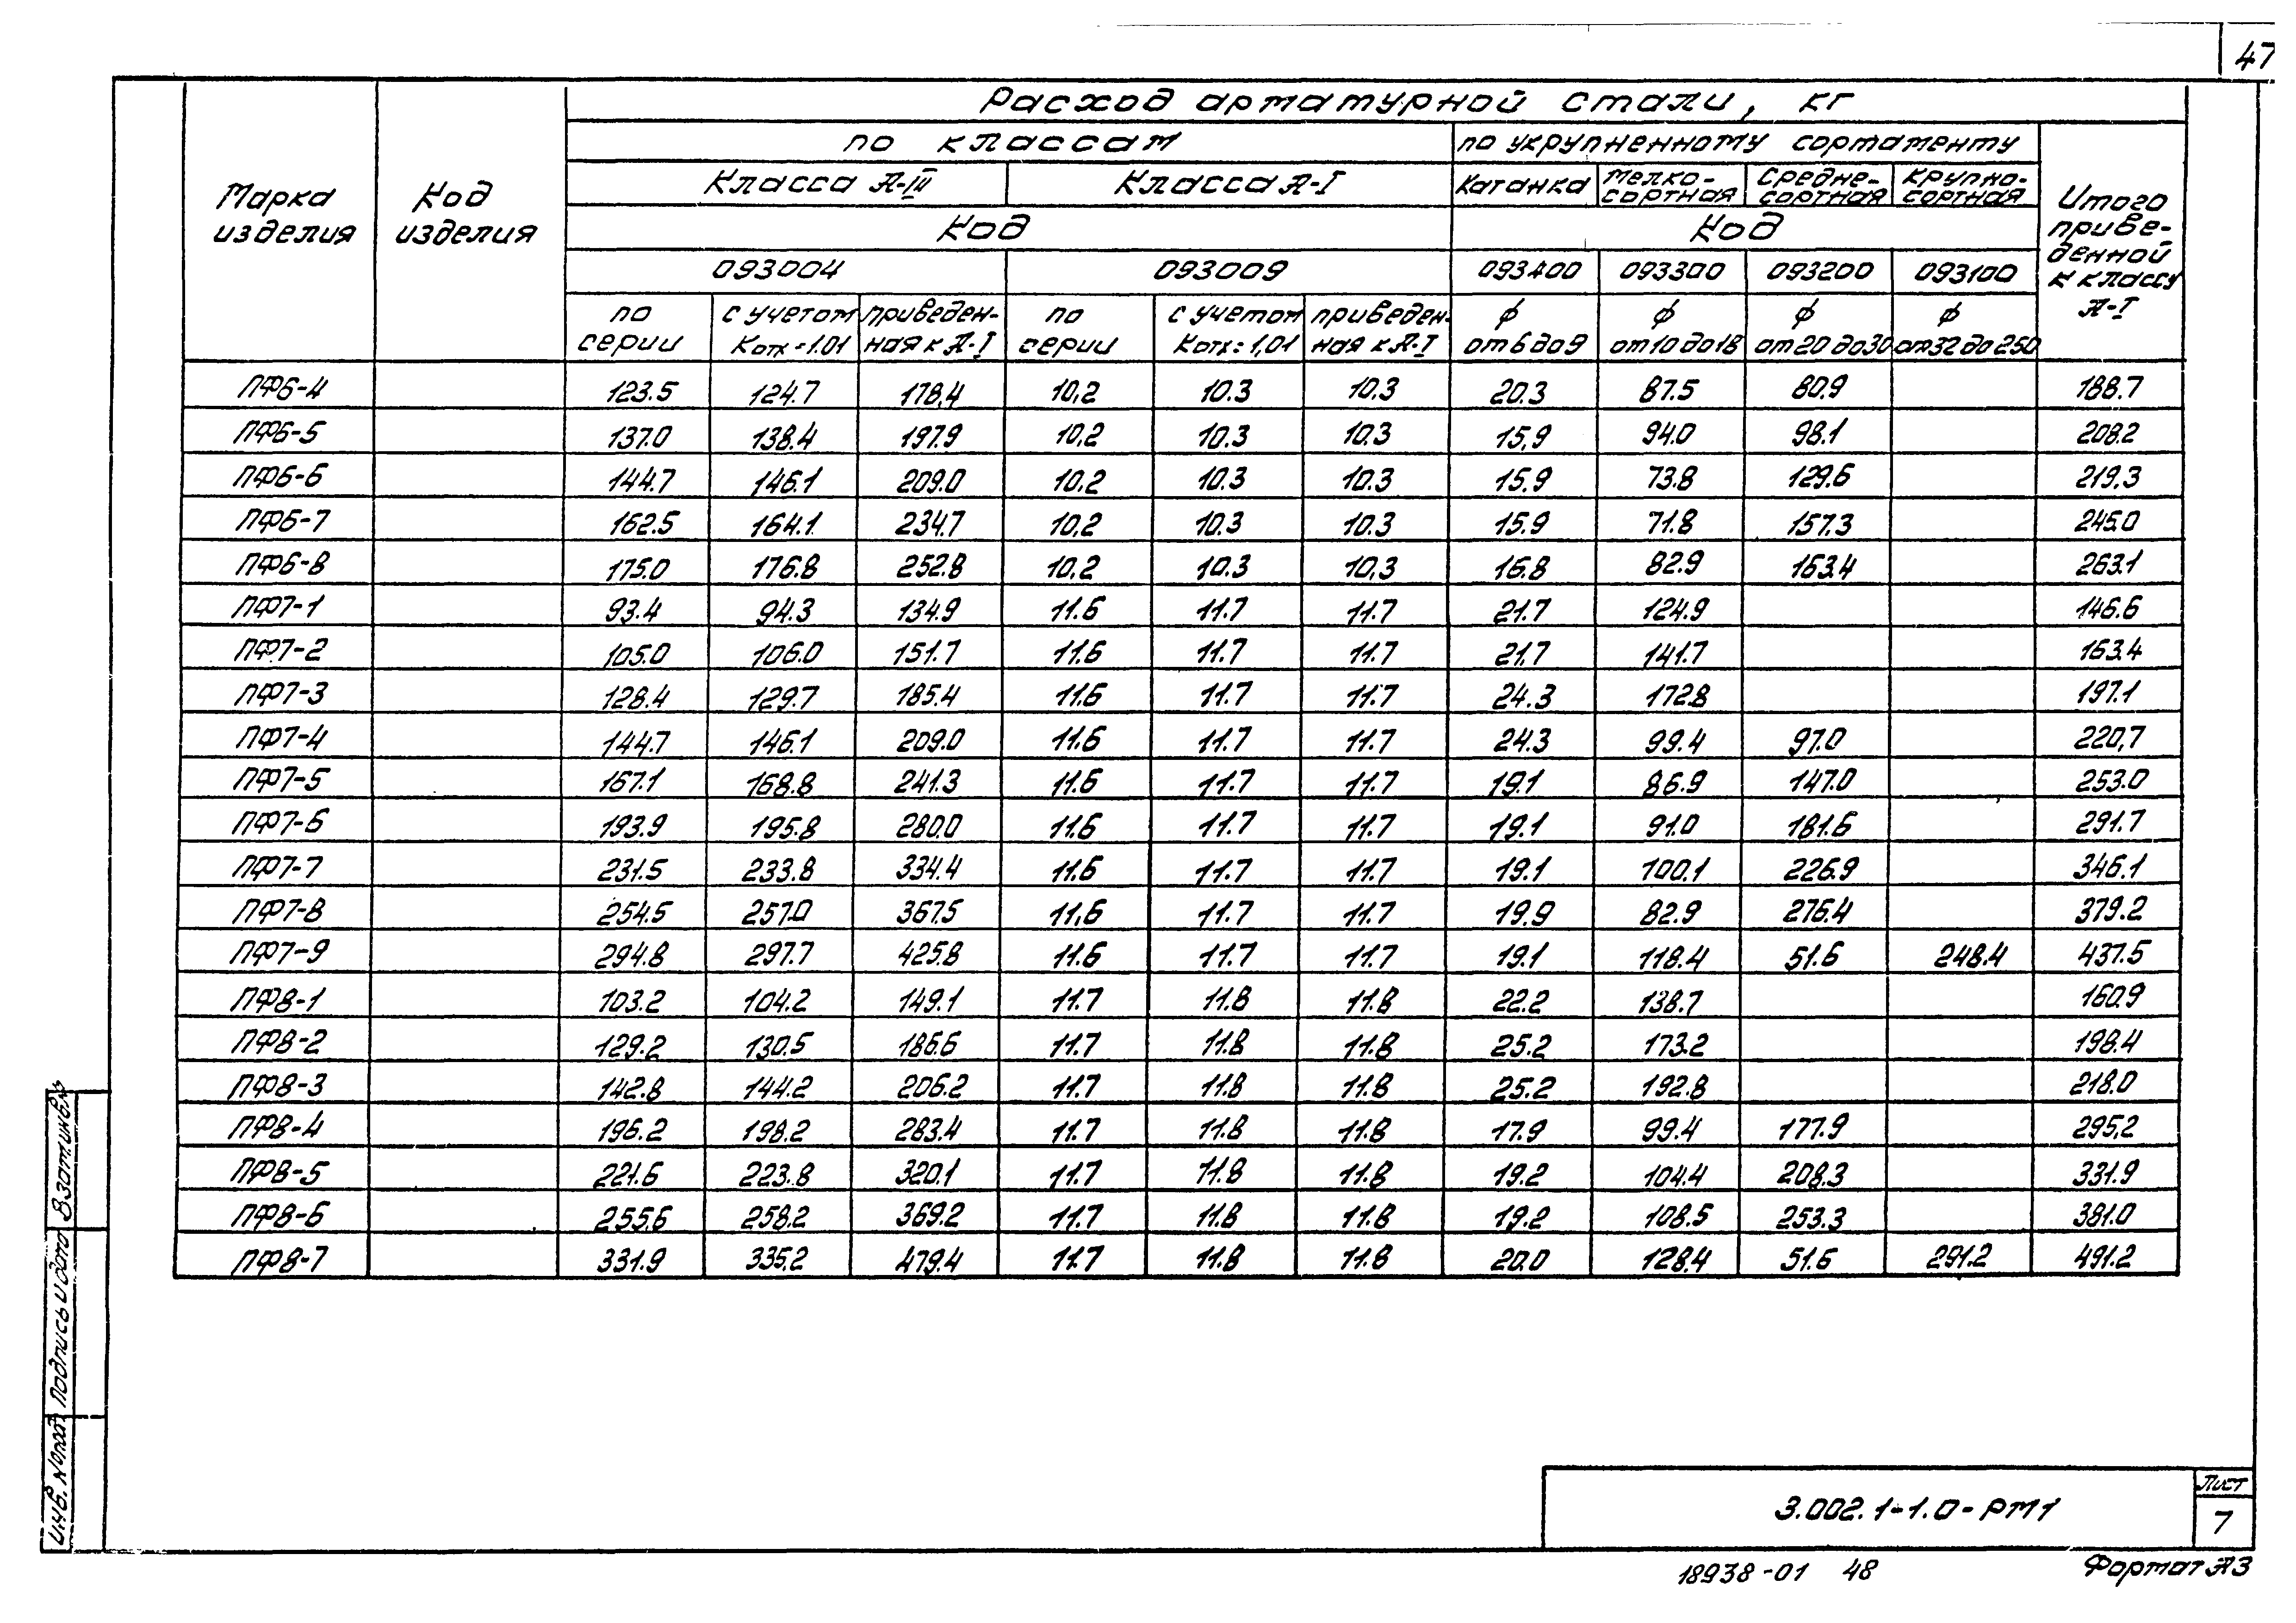 47
Расход арматурной стали, кг
по классам
по укрупненному сортаменту
Марка изделия
Код изделия
Класса А-III
Класса А-I
Катанка
Мелко-сортная
Средне-сортная
Крупно-сортная
Итого приве-денной к классу А-I
Код
Код
093004
093009
093400
093300
093200
093100
по серии
с учетом Котх = 1.01
приведен-ная к А-I
по серии
с учетом Котх = 1,01
приведен-ная к А-I
ф от 6 до 9
ф от 10 до 18
ф от 20 до 30
ф от 32 до 250
ПФ6-4 123.5 124.7 178,4 10,2 10.3 10.3 20.3 87.5 80.9 188.7
ПФ6-5 137.0 138.4 197.9 10,2 10.3 10.3 15,9 94.0 98.1 208.2
ПФ6-6 144.7 146.1 209.0 10,2 10.3 10.3 15.9 73.8 129.6 219,3
ПФ6-7 162.5 164.1 234.7 10,2 10.3 10.3 15.9 71.8 157.3 245.0
ПФ6-8 175.0 176.8 252.8 10,2 10.3 10,3 16.8 82.9 163.4 263.1
ПФ7-1 93.4 94.3 134.9 11.6 11.7 11.7 21.7 124.9 146.6
ПФ7-2 105.0 106.0 151.7 11.6 11.7 11.7 21,7 141.7 163.4
ПФ7-3 128.4 129.7 185.4 11.6 11.7 11.7 24.3 172.8 197.1
ПФ7-4 144.7 146.1 209.0 11.6 11.7 11.7 24.3 99.4 97.0 220,7
ПФ7-5 167.1 168.8 241.3 11.6 11.7 11.7 19.1 86.9 147.0 253.0
ПФ7-6 193.9 195.8 280.0 11.6 11.7 11.7 19.1 91.0 181.6 291.7
ПФ7-7 231.5 233.8 334.4 11.6 11.7 11.7 19.1 100.1 226.9 346.1
ПФ7-8 254.5 257.0 367.5 11,6 11.7 11.7 19.9 82.9 276.4 379.2
ПФ7-9 294.8 297.7 425.8 11.6 11.7 11.7 19.1 118.4 51.6 248.4 437.5
ПФ8-1 103.2 104.2 149.1 11.7 11.8 11.8 22.2 138.7 160.9
ПФ8-2 129.2 130.5 186.6 11.7 11.8 11.8 25.2 173.2 198.4
ПФ8-3 142.8 144.2 206.2 11.7 11.8 11.8 25.2 192.8 218.0
ПФ8-4 196.2 198.2 283.4 11.7 11.8 11.8 17.9 99.4 177.9 295,2
ПФ8-5 221.6 223.8 320.1 11.7 11.8 11.8 19.2 104.4 208.3 331.9
ПФ8-6 255.6 258.2 369.2 11.7 11.8 11.8 19.2 108.5 253.3 381.0
ПФ8-7 331.9 335.2 479.4 11.7 11.8 11.8 20.0 128.4 51.6 291.2 491.2
Инв. № подл. Подпись и дата Взам. инв. №
3.002.1-1.0-РМ1
Лист
7
18938-01 48
Формат А3